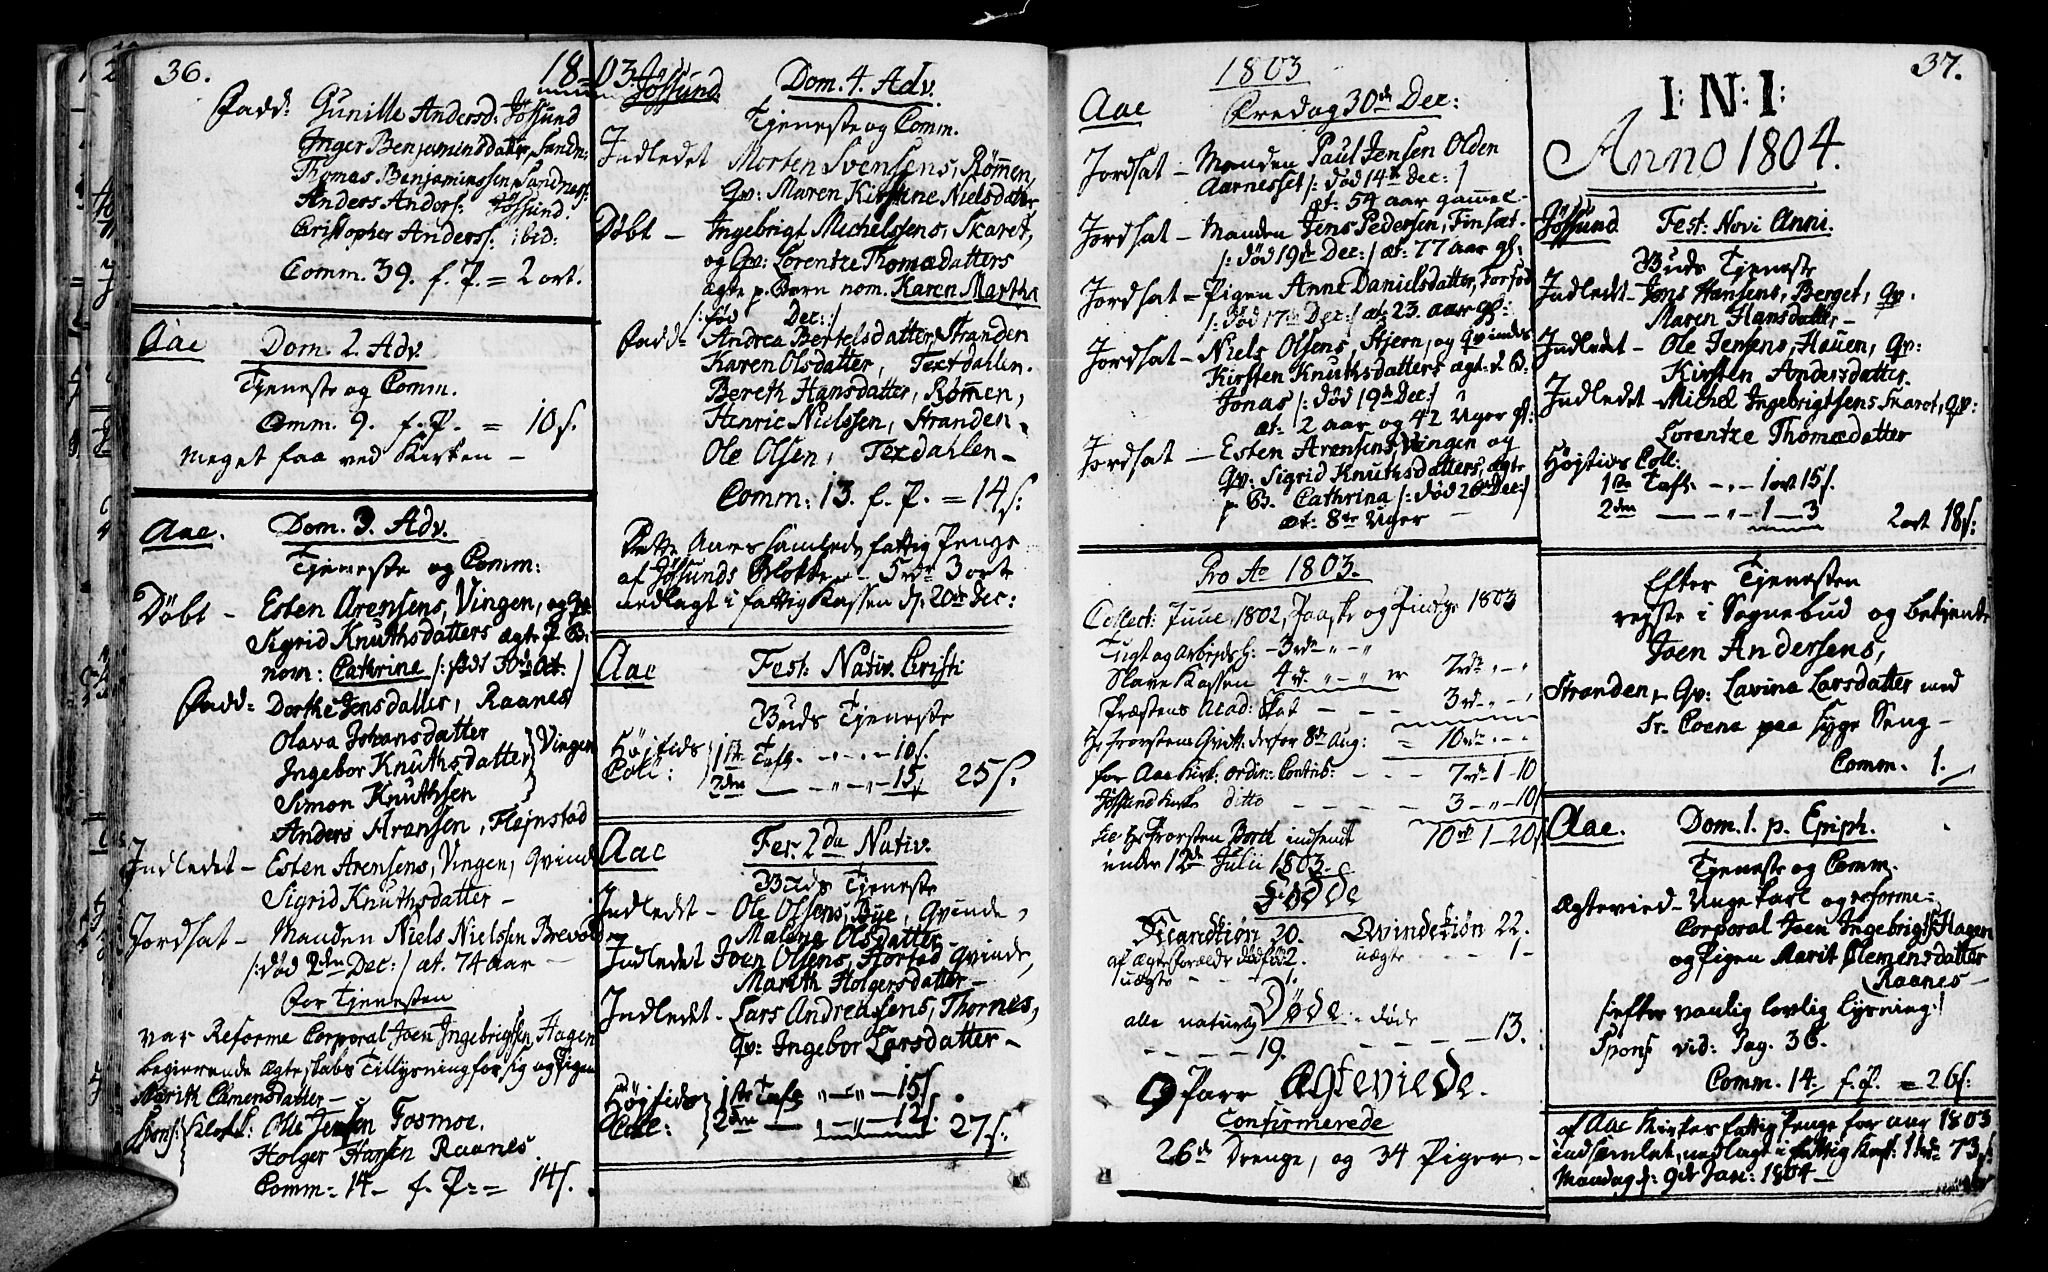 36.
1803.
Fadd: Gunille Andersd: Jössund
Inger Benjaminsdatter, Sandn:
Thomas Benjaminssen, Sandnæs
Anders Anders: Jössund.
Christopher Anderss: ibid:
Comm. 39. f. P. = 2 ort.
Aae Dom. 2. Adv.
Tjeneste og Comm.
Comm. 9. f. P. = 10 s.
Meget faa ved Kirken –
Aae. Dom. 3. Adv.
Tjeneste og Comm:
Döbt – Esten Arensens, Vingen, og Qv:
Sigrid Knuthsdatters ægte p. B:
nom: Cathrine /: født 30te Oct. /
Fadd: Dorthe Jensdatter, Raanes
Olava Johansdatter
Ingebor Knuthsdatter } Vingen
Simon Knuthsen
Anders Aransen, Fleinstad
Indledet – Esten Arensens, Vingen, Qvinde
Sigrid Knuthsdatter –
Jordsat – Manden Niels Nielssen Brevold
/: död 2den Dec: / æt. 74 aar –
For Tjenesten
var Reforme Corporal Joen Ingebrigtsen, Hagen
begierende Ægteskabs Tillysning for sig og Pigen
Marith Clemensdatter –
Spons: Ole Jensen Fosmoe.
Holger Hansen Raanes.
Comm: 14 – f. P. = 14 s.
Jössund. Dom. 4. Adv.
Tjeneste og Comm.
Indledet Morten Svensens, Rømmen,
Qv: Maren Kirstine Nielsdatter
Döbt – Ingebrigt Michelssens, Skaret,
og Qv: Lorentze Thomædatters
ægte p. Barn nom. Karen Martha
/: född Dec: /
Fadd: Andrea Bertelsdatter, Stranden
Karen Olsdatter, Texdahlen.
Bereth Hansdatter, Rømmen,
Henric Nielssen, Stranden.
Ole Olsen, Texdahlen –
Comm: 13. f. P. = 14 s:
Dette Aars samlede fattig Penge
af Jössunds Blokke – 5 rdr 3 ort
nedlagt i fattig Kassen d: 20de Dec:
Aae Fest: Nativ. Cristi
Buds Tjeneste
Højtids Coll: } 1ste Tafl. – „ – 10 s.
2den – „ – 15 25 s.
Aae Fer. 2da Nativ.
Buds Tjeneste
Indledt – Ole Olsens, Bye, Qvinde,
Malena Olsdatter –
Indledet Joen Olsens, Hofstad Qvinde,
Marith Holgersdatter –
Indledet – Lars Andreasens, Thornes,
Qv: Ingebor Larsdatter –
Højtids Coll: } 1ste Tafl „ – „ – 15 s.
2den – „ – 12 s. 27 s.
1803
Aae Fredag 30te Dec:
Jordsat – Manden Paul Jensen Olden
Aarnesset /: död 14de Dec: /
æt: 54 aar gammel –
Jordsat – Manden Jens Pedersen, Finsæt –
/: död 19de Dec: / æt: 77 aar gl:
Jordsat – Pigen Anne Danielsdatter, Forfod
/: död 17de Dec: / æt: 23. aar gl:
Jordsat – Niels Olsens, Stjern, og Qvindes
Kirsten Knuthsdatters ægte d. B.
Jonas /: död 19de Dec: /
æt: 2 aar og 42 Uger gl:
Jordsat – Esten Arensens, Vingen og
Qv: Sigrid Knuthsdatters, ægte
p. B. Cathrina /: död 26de Dec: /
æt: 8te Uger –
Pro Ao 1803.
Collect: Juul, 1802, Paaske og Pindse 1803
Tugt og Arbejds H: – 3 rdr „ – „
Slave Kassen 4 rd. „ – „ er 7 rdr „ – „
Præstens Acad: Skat – – – 3 rd – „ – „
Hr Provstens Qvitt: derfor 8de Aug: = 10 rdr – – –
for Aae Kirk: ordin: Contrib: – – – 7 rdr 1 – 10
Jössund Kirke ditto – – – – 3 – „ – 10 s
til Hr Provsten Borch indsendt 10 rdr 1 – 20 s
under 12te Julii 1803.
Födde
Mandkiön 20. Qvindekiön 22.
af Ægteforældre dödföd 2. uægte – – – 1 –
uægte – – – 1.
Döde
alle naturlig döde – – 13.
– – – – 19.
9 Parr Ægteviede.
Confirmerede
26de Drenge, og 34 Piger –
37.
I: N: I:
Anno 1804.
Jössund Fest: Novi Anni.
Buds Tjeneste
Indledet – Jens Hansens, Berget, Qv.
Maren Hansdatter –
Indledet – Ole Jensens, Hauen, Qv:
Kirsten Andersdatter.
Indledet – Michel Ingebrigtsens Skaret, Qv:
Lorentze Thomædatter
Højtids Coll:
1ste Tafl. – „ – 1 ort 15 s.
2den – – „ – 1 – 3 2 ort 18 s:
Efter Tjenesten
reyste i Sognebud og betjente
Joen Andersens,
Stranden, Qv: Lavina Larsdatter med
Sr. Coena paa Syge Seng –
Comm. 1.
Aae. Dom. 1. p. Epiph.
Tjeneste og Comm.
Ægtevied – Unge Karl og reforme
Corporal Joen Ingebrigts: Hagen
og Pigen Marit Clemensdatter
Raanes –
/: efter vanlig lovlig Lysning: /
Spons: vid: Pag. 36.
Comm. 14. f. P. = 26 s:
af Aae Kirkes fattig Penge for aar 1803
indsamlet, nedlagt i fattig Kass: 11 rdr 73 s:
Mandag d: 9de Jan: 1804 –